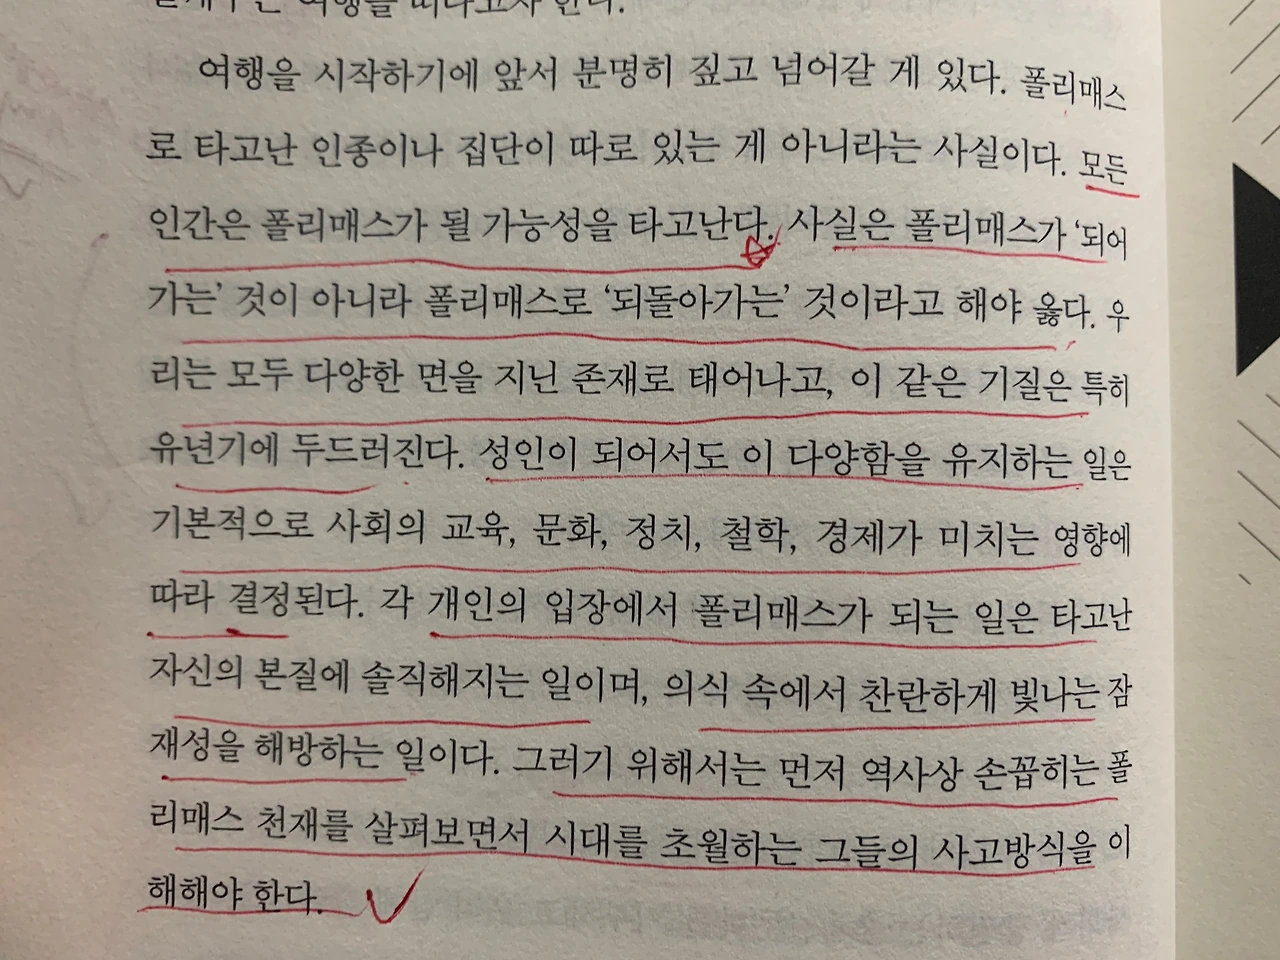 여행을 떠나고자 한다.
여행을 시작하기에 앞서 분명히 짚고 넘어갈 게 있다. 폴리매스
로 타고난 인종이나 집단이 따로 있는 게 아니라는 사실이다. 모든
인간은 폴리매스가 될 가능성을 타고난다. 사실은 폴리매스가 ‘되어
가는’ 것이 아니라 폴리매스로 ‘되돌아가는’ 것이라고 해야 옳다. 우
리는 모두 다양한 면을 지닌 존재로 태어나고, 이 같은 기질은 특히
유년기에 두드러진다. 성인이 되어서도 이 다양함을 유지하는 일은
기본적으로 사회의 교육, 문화, 정치, 철학, 경제가 미치는 영향에
따라 결정된다. 각 개인의 입장에서 폴리매스가 되는 일은 타고난
자신의 본질에 솔직해지는 일이며, 의식 속에서 찬란하게 빛나는 잠
재성을 해방하는 일이다. 그러기 위해서는 먼저 역사상 손꼽히는 폴
리매스 천재를 살펴보면서 시대를 초월하는 그들의 사고방식을 이
해해야 한다.